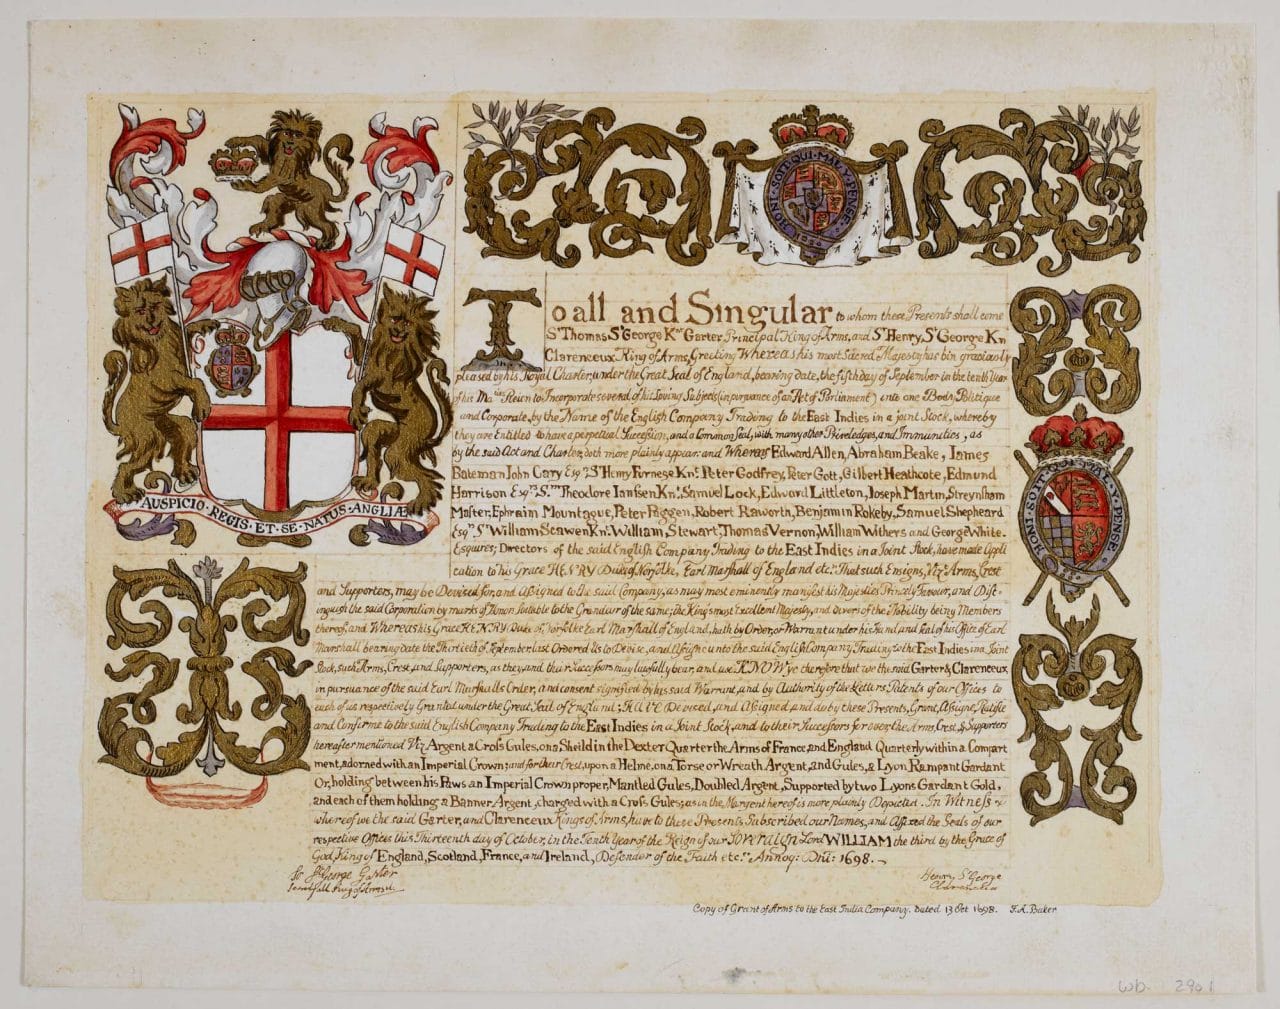 AUSPICIO·REGIS·ET·SE·NATUS·ANGLIÆ
HONI·SOIT·QUI·MAL·Y·PENSE
To all and Singular to whom these Presents shall come
Sr. Thomas St. George Knt. Garter Principal King of Arms, and Sr. Henry St. George Knt.
Clarenceux King of Arms, Greeting Whereas his most Sacred Majesty has bin graciously
pleased by his Royal Charter, under the Great Seal of England, bearing date, the fifth day of September in the tenth Year
of his Maties Reign to Incorporate several of his loving Subjects (in pursuance of an Act of Parliament) into one Body Politique
and Corporate, by the Name of the English Company Trading to the East Indies in a joint Stock, whereby
they are Entitled to have a perpetual Succession, and a Common Seal, with many other Priveledges, and Immunities, as
by the said Act and Charter, doth more plainly appear: and Whereas Edward Allen, Abraham Beake, James
Bateman John Cary Esqrs. Sr. Henry Furnese Knt. Peter Godfrey, Peter Gott, Gilbert Heathcote, Edmund
Harrison Esqrs. Sr. Theodore Iansen Knt. Samuel Lock, Edward Littleton, Joseph Martin, Streynsham
Master, Ephraim Mountague, Peter Paggen, Robert Raworth, Benjamin Rokeby, Samuel Shepheard
Esqrs. Sr. William Scawen Knt. William Stewart, Thomas Vernon, William Withers and George White
Esquires; Directors of the said English Company Trading to the East Indies in a Joint Stock, have made Appli
cation to his Grace HENRY Duke of Norfolke, Earl Marshall of England etc. That such Ensigns, Viz. Arms, Crest
and Supporters, may be Devised for, and Assigned to the said Company, as may most eminently manifest his Majesties Princely Favour, and Dist-
inguish the said Corporation by marks of Honor Suitable to the Grandeur of the same; the King's most Excellent Majesty, and divers of the Nobility being Members
thereof, and Whereas his Grace HENRY Duke of Norfolke Earl Marshall of England, hath by Order, or Warrant under his Hand, and Seal of his Office of Earl
Marshall bearing date the Thirtieth of September last Ordered Us to Devise, and Assigne unto the said English Company Trading to the East Indies in a Joint
Stock, such Arms, Crest, and Supporters, as they, and their Successors may lawfully bear, and use KNOW ye therefore that we the said Garter & Clarenceux
in pursuance of the said Earl Marshalls Order, and consent signified by his said Warrant, and by Authority of the Letters Patents of our Offices to
each of us respectively Granted under the Great Seal of England; HAVE Devised, and Assigned, and do by these Presents, Grant, Assigne, Ratifie
and Confirme to the said English Company Trading to the East Indies in a Joint Stock, and to their Successors for ever the Arms, Crest, & Supporters
hereafter mentioned Viz Argent a Cross Gules, on a Sheild in the Dexter Quarter the Arms of France, and England Quarterly within a Compart
ment, adorned with an Imperial Crown; and for their Crest, upon a Helme, on a Torse or Wreath Argent, and Gules, a Lyon Rampant Gardant
Or, holding between his Paws an Imperial Crown proper, Mantled Gules, Doubled Argent, Supported by two Lyons Gardant Gold,
and each of them holding a Banner Argent, charged with a Cross Gules; as in the Margent hereof is more plainly Depicted. In Witness
whereof we the said Garter, and Clarenceux Kings of Arms, have to these Presents Subscribed our Names, and Affixed the Seals of our
respective Offices this Thirteenth day of October, in the Tenth Year of the Reign of our Soveraign Lord WILLIAM the third by the Grace of
God, King of England, Scotland, France, and Ireland, Defender of the Faith etc. Annoq: Dni: 1698.
St George Garter
King of Arms
Henry St George
HONI·SOIT·QUI·MAL·Y·PENSE
Copy of Grant of Arms to the East India Company. Dated 13 Oct 1698. F.A. Baker
WD 2901